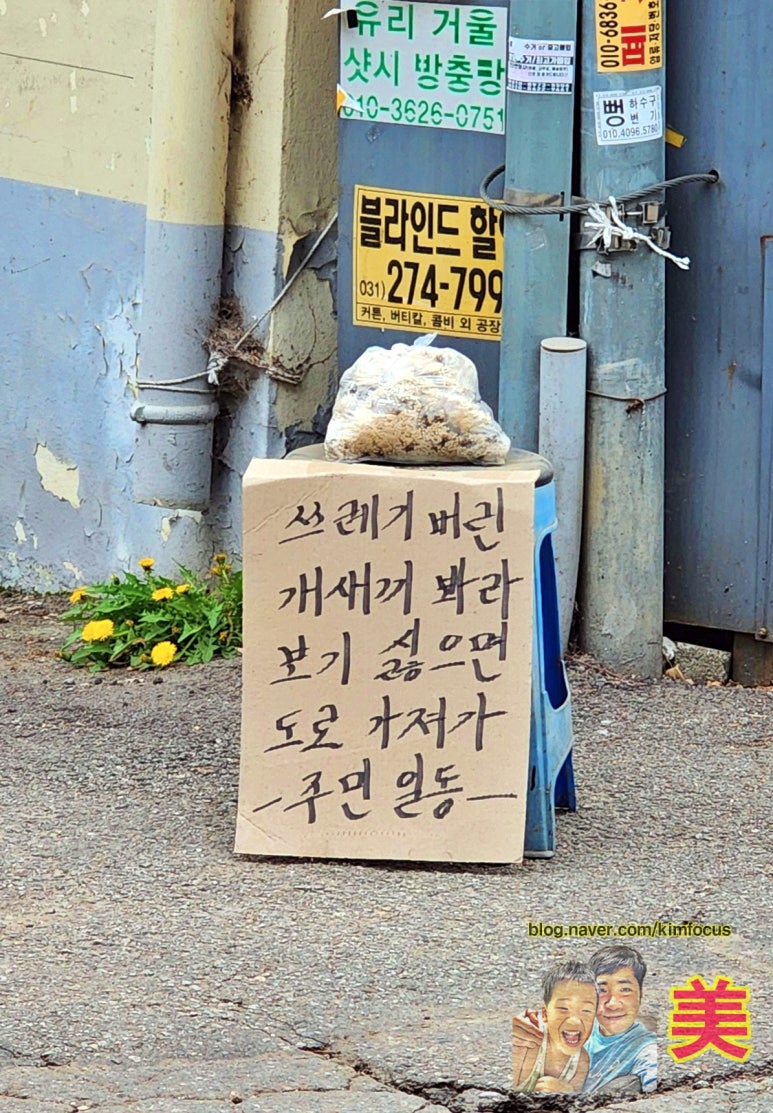 유리 거울
샷시 방충망
010-3626-0751
블라인드 할
031) 274-799
커튼, 버티칼, 콤비 외 공장
010-6836
뻥 하수구
변기
010.4096.5780
쓰레기 버린
개새끼 봐라
보기 싫으면
도로 가져가
-주민 일동-
blog.naver.com/kimfocus
美